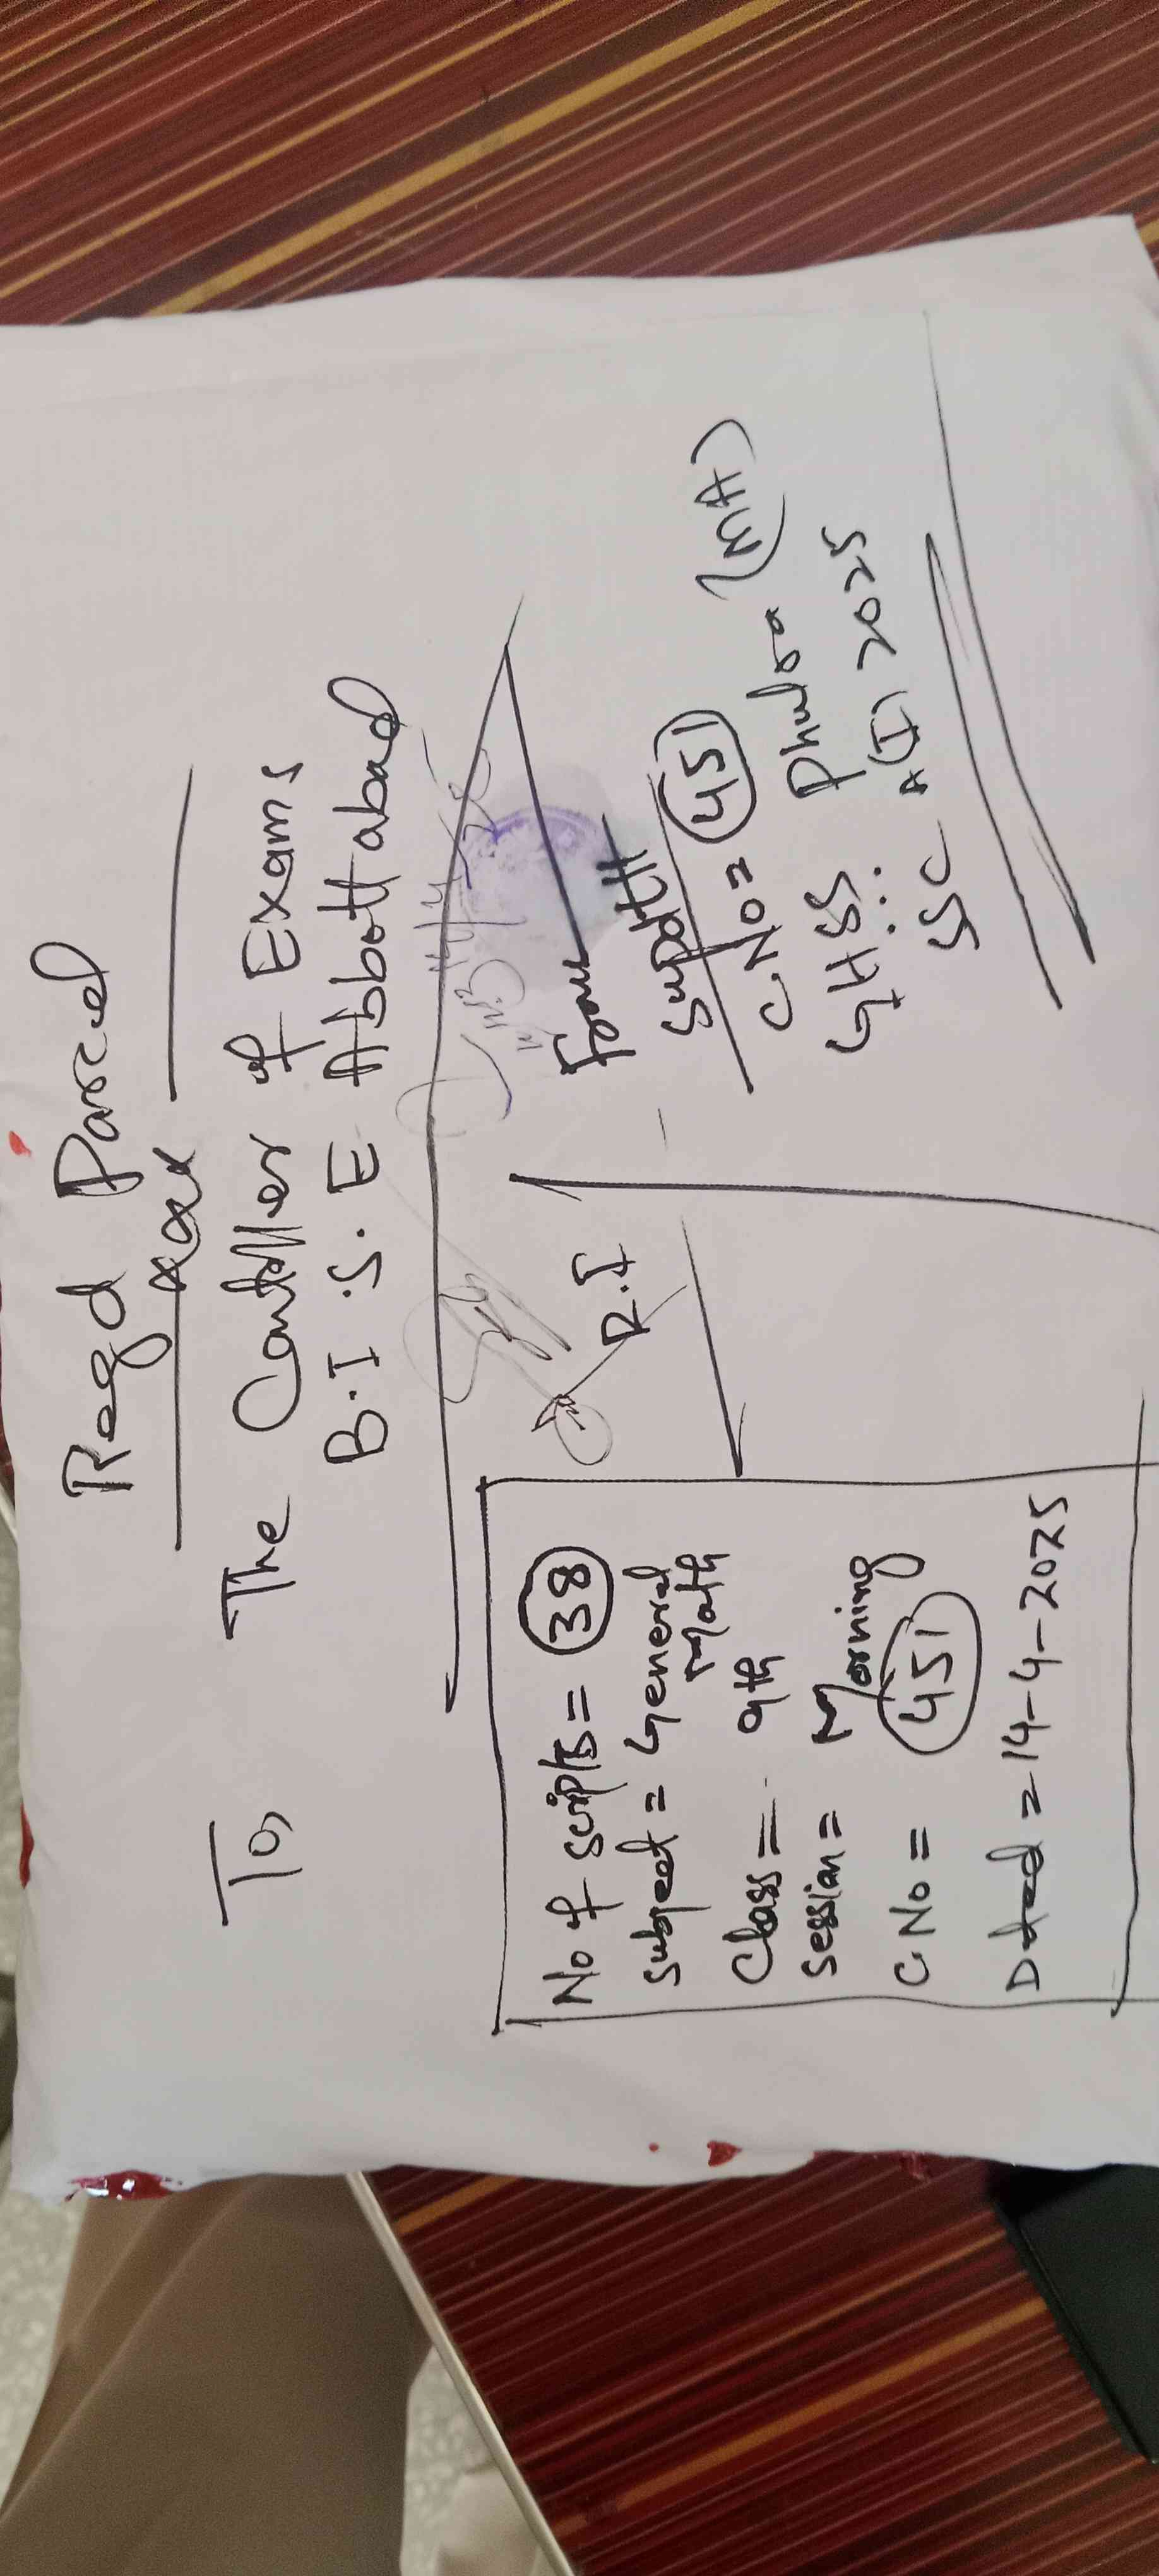 Regd Parcel
To,
The Contoller of Exams
B.I.S.E Abbottabad
No of scripts = 38
Subject = General
Math
Class = 9th
Session = Morning
C.No = 451
Dated = 14-4-2025
R.I
From
Supdtt
C.No = 451
GHSS Phulra (MA)
SSC A(I) 2025